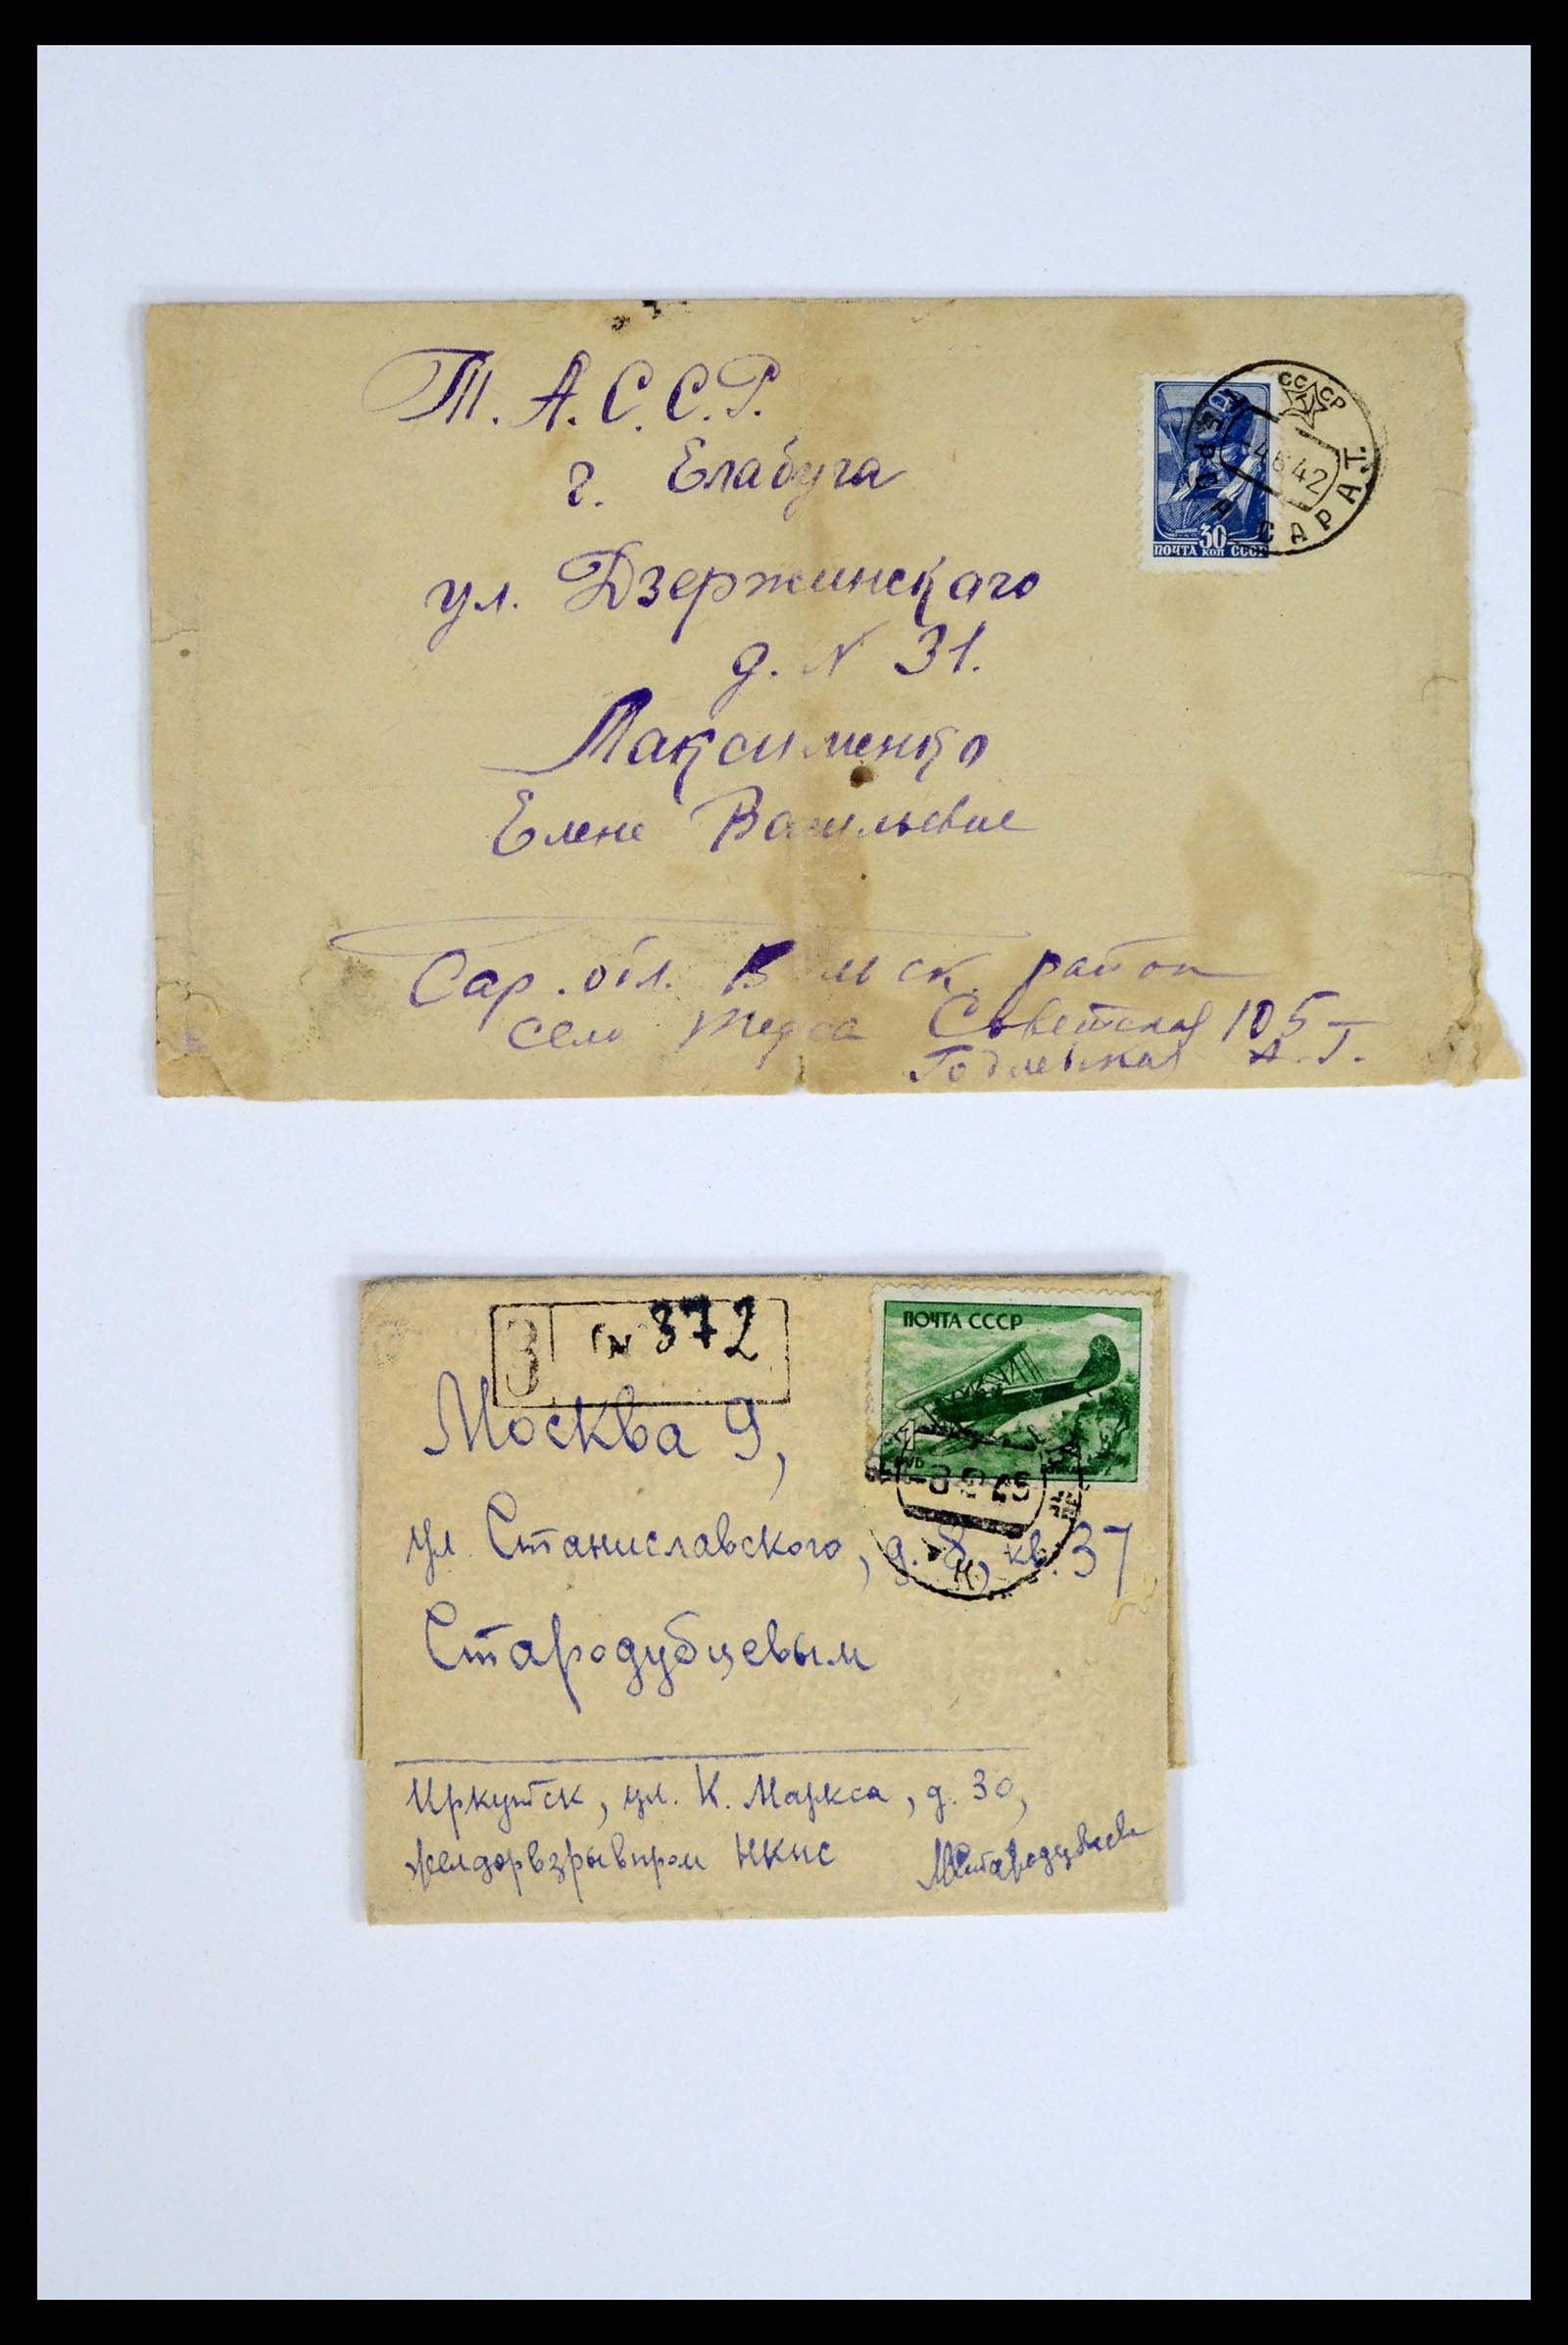 Т. А. С. С. Р.
г. Елабуга
ул. Дзержинскаго
д. N 31.
Максименко
Елене Васильевне
СССР
ТЕРСА САРАТ.
4 6 42
30
ПОЧТА КОП СССР
Сар. обл. ск. район
село Терса Советская 105
Годлевская А. Г.
З № 372
ПОЧТА СССР
РУБ
Москва 9,
ул. Станиславского, д. 8, кв. 37
Стародубцевым
Иркутск, ул. К. Маркса, д. 30,
Желдорвзрывпром НКПС